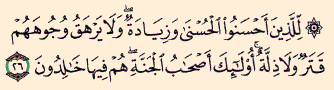 ۞ لِّلَّذِينَ أَحْسَنُوا۟ ٱلْحُسْنَىٰ وَزِيَادَةٌ ۖ وَلَا يَرْهَقُ وُجُوهَهُمْ
قَتَرٌ وَلَا ذِلَّةٌ ۚ أُو۟لَـٰٓئِكَ أَصْحَـٰبُ ٱلْجَنَّةِ ۖ هُمْ فِيهَا خَـٰلِدُونَ ٢٦